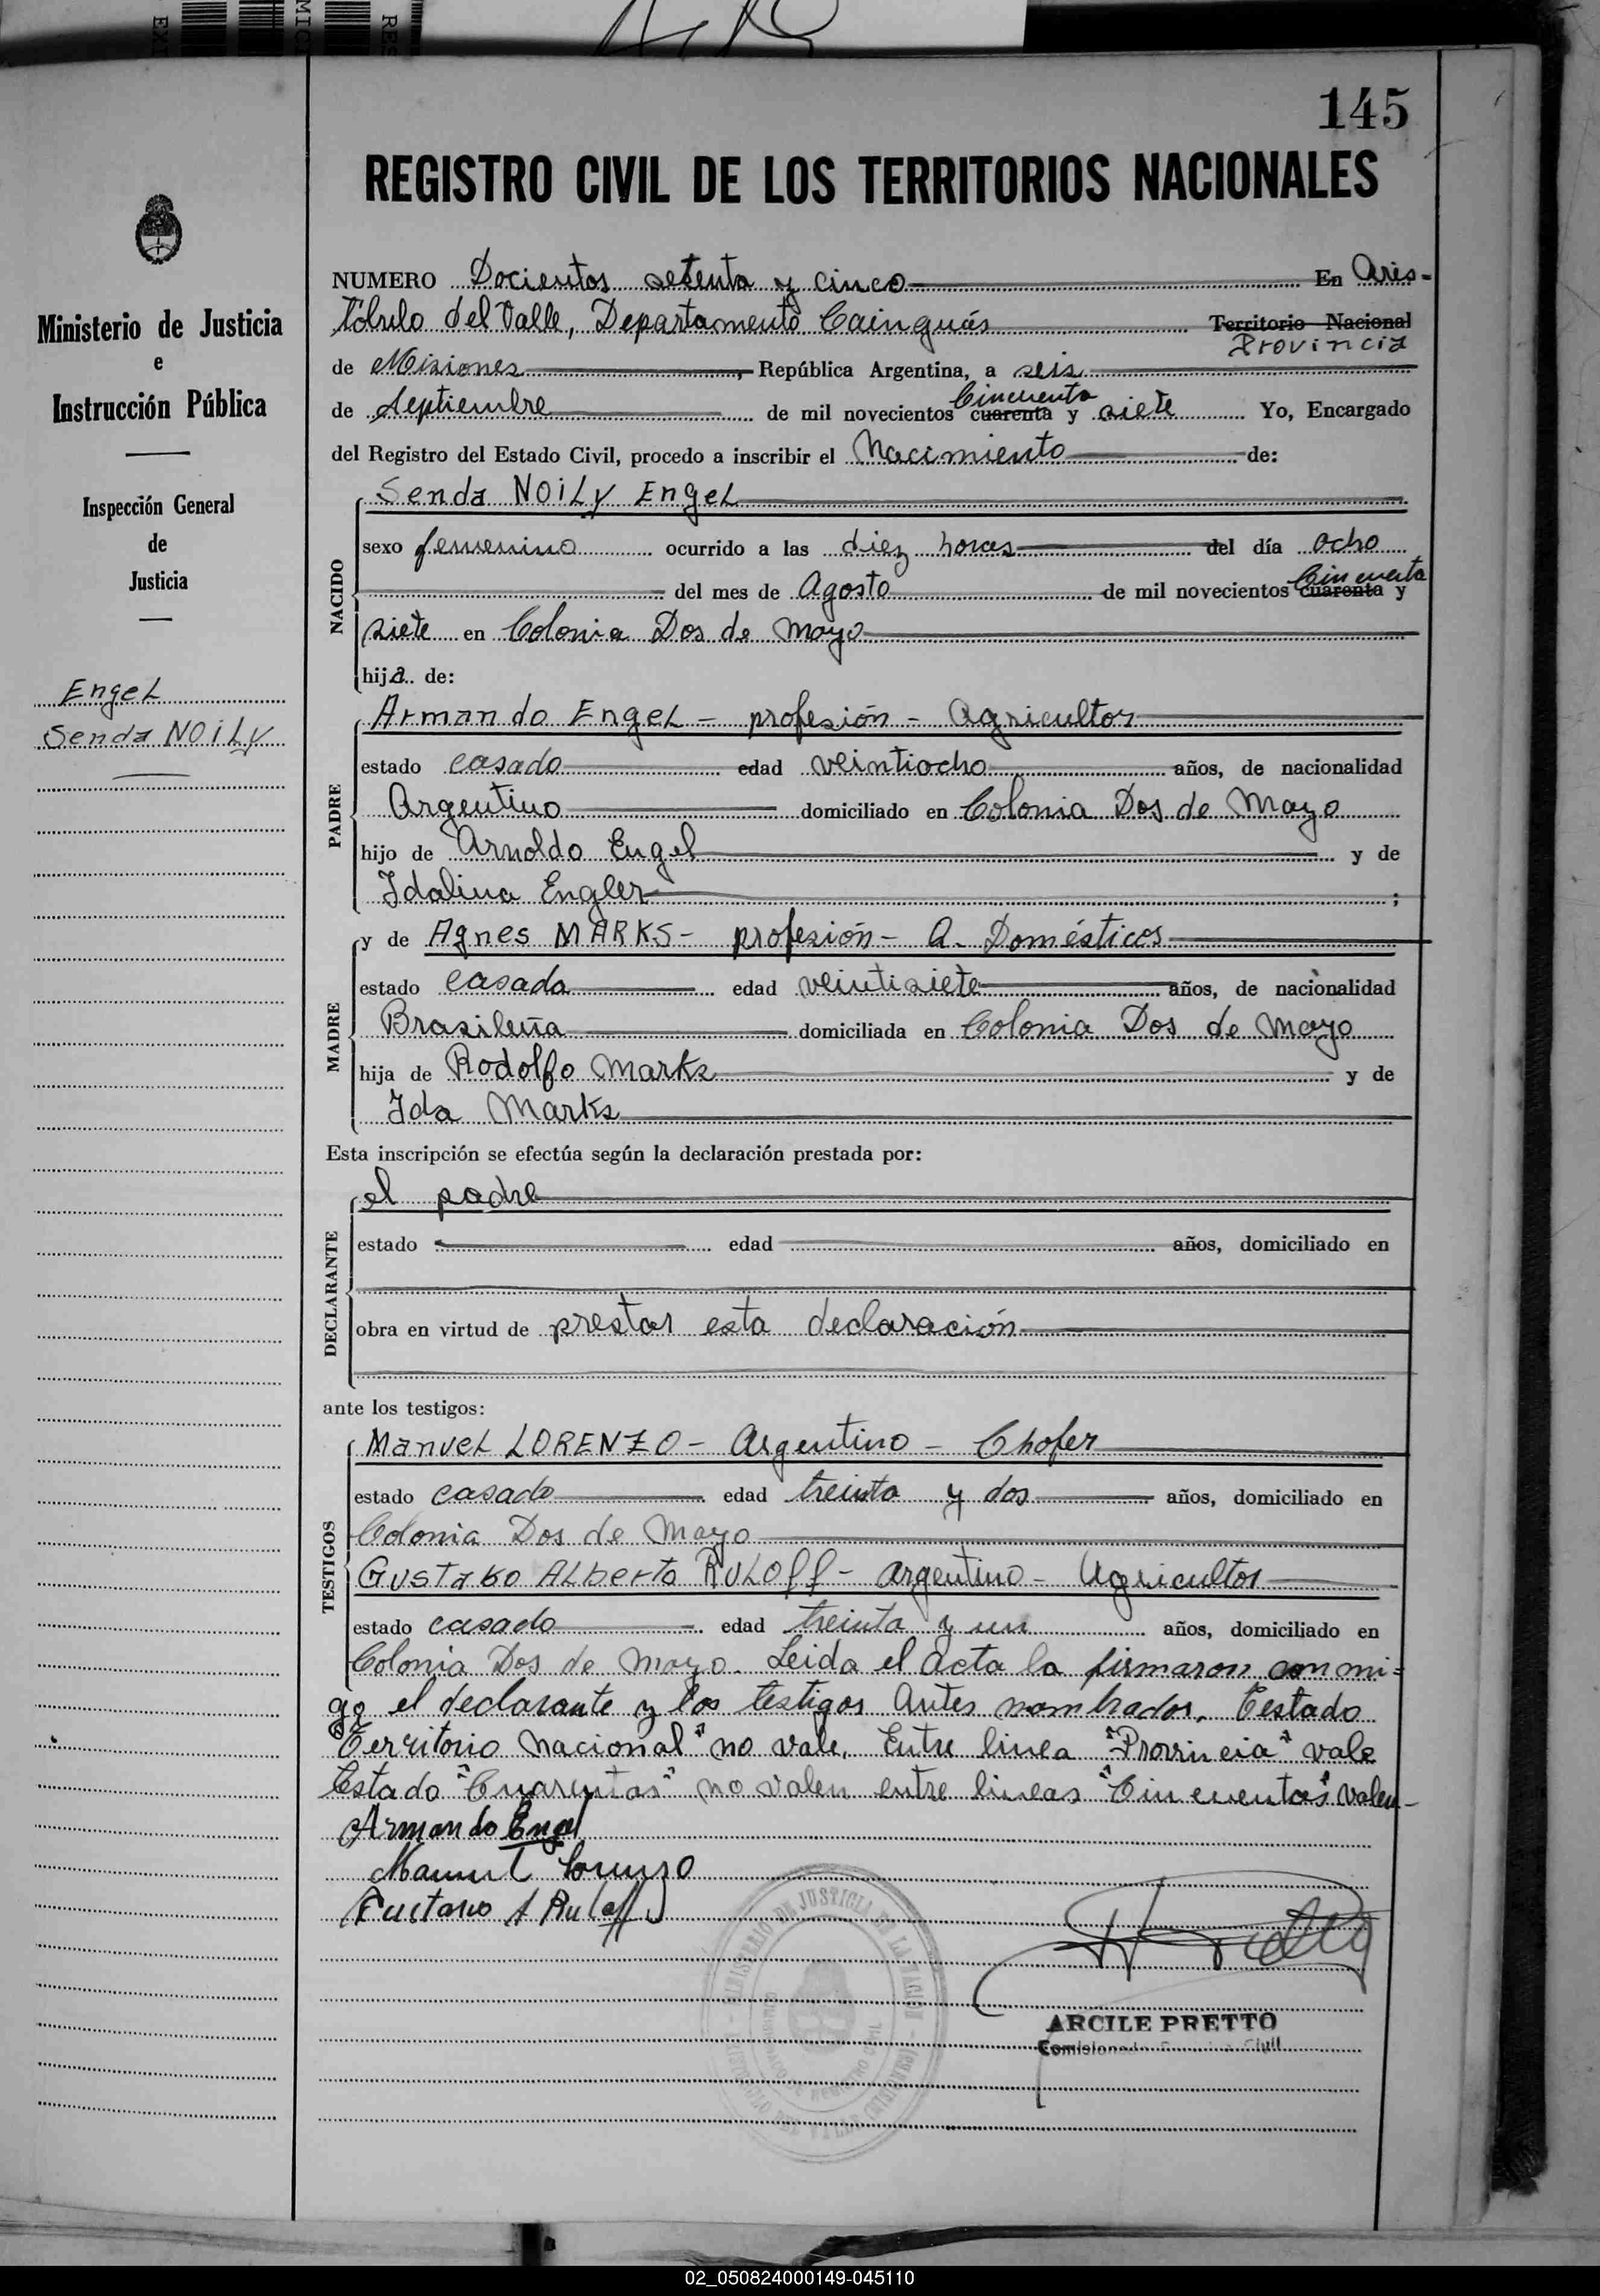 145
REGISTRO CIVIL DE LOS TERRITORIOS NACIONALES
Ministerio de Justicia
e
Instrucción Pública
Inspección General
de
Justicia
Engel
Senda NOiLy
NUMERO Docientos setenta y cinco En Aris-
tóbulo del Valle, Departamento Cainguás Territorio Nacional
Provincia
de Misiones, República Argentina, a seis
Cincuenta
de Septiembre de mil novecientos cuarenta y siete Yo, Encargado
del Registro del Estado Civil, procedo a inscribir el Nacimiento de:
NACIDO
Senda NOiLy Engel
sexo femenino ocurrido a las diez horas del día ocho
Cincuenta
del mes de Agosto de mil novecientos cuarenta y
siete en Colonia Dos de Mayo
hija de:
PADRE
Armando Engel - profesión - Agricultor
estado casado edad veintiocho años, de nacionalidad
Argentino domiciliado en Colonia Dos de Mayo
hijo de Arnoldo Engel y de
Idalina Engler ;
MADRE
y de Agnes MARKS - profesión - Q. Domésticos
estado casada edad veintisiete años, de nacionalidad
Brasileña domiciliada en Colonia Dos de Mayo
hija de Rodolfo Marks y de
Ida Marks
Esta inscripción se efectúa según la declaración prestada por:
DECLARANTE
el padre
estado edad años, domiciliado en
obra en virtud de prestar esta declaración
ante los testigos:
TESTIGOS
Manuel LORENZO - Argentino - Chofer
estado casado edad treinta y dos años, domiciliado en
Colonia Dos de Mayo
Gustavo Alberto RULOff - Argentino - Agricultor
estado casado edad treinta y un años, domiciliado en
Colonia Dos de Mayo. Leida el acta la firmaron conmi=
go el declarante y los testigos antes nombrados. Testado
"Territorio Nacional" no vale. Entre linea "Provincia" vale
Testado "Cuarentas" no valen entre lineas "Cincuentas" valen-
Armando Engel
Manuel Lorenzo
Gustavo A Ruloff
MINISTERIO DE JUSTICIA DE LA NACION
ARCILE PRETTO
02_050824000149-045110